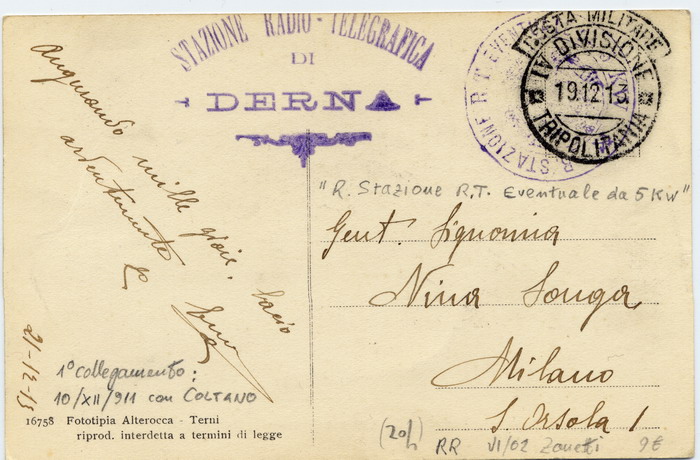 STAZIONE RADIO-TELEGRAFICA
DI
DERNA
POSTA MILITARE
IV DIVISIONE
19.12.13
TRIPOLITANIA
R. STAZIONE R.T. EVENT
Augurando mille gioie, bacio
ardentemente
21-12-13
"R. Stazione R.T. Eventuale da 5 KW"
Gent. Signorina
Nina Songa
Milano
S. Orsola 1
1° collegamento:
10/XII/911 con COLTANO
16758 Fototipia Alterocca - Terni
riprod. interdetta a termini di legge
(20h) RR VI/02 Zanetti 9€